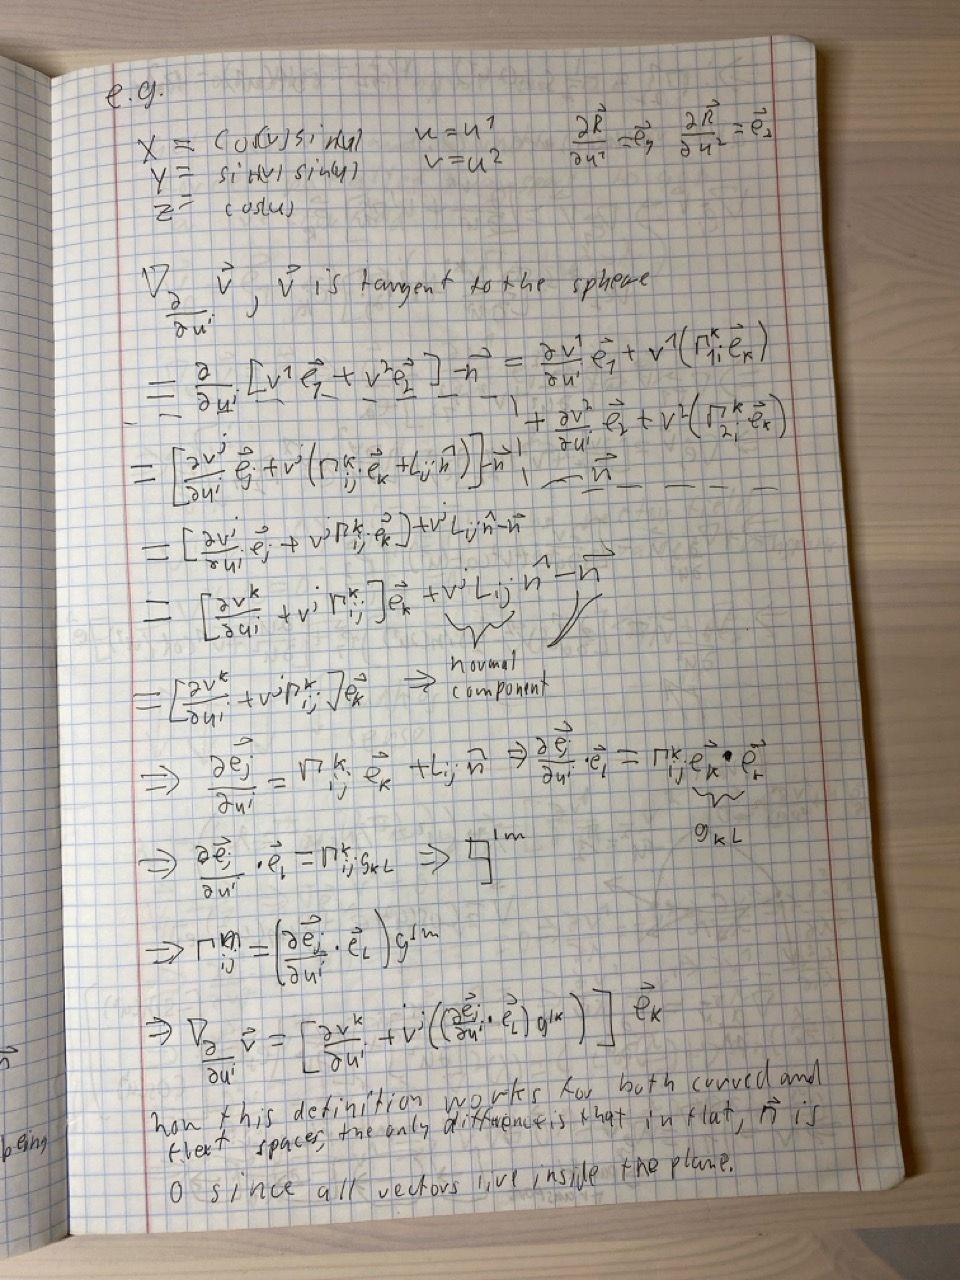 e.g.
X = cos(v) sin(u)    u = u¹    ∂R⃗/∂u¹ = e⃗₁    ∂R⃗/∂u² = e⃗₂
Y = sin(v) sin(u)    v = u²
Z = cos(u)
∇_{∂/∂uⁱ} v⃗, v⃗ is tangent to the sphere
= ∂/∂uⁱ [v¹ e⃗₁ + v² e⃗₂] - n⃗ = ∂v¹/∂uⁱ e⃗₁ + v¹(Γᵏ₁ᵢ e⃗ₖ)
+ ∂v²/∂uⁱ e⃗₂ + v²(Γᵏ₂ᵢ e⃗ₖ)
= [∂vʲ/∂uⁱ e⃗ⱼ + vʲ(Γᵏᵢⱼ e⃗ₖ + Lᵢⱼ n̂)] - n⃗    - n⃗
= [∂vʲ/∂uⁱ e⃗ⱼ + vʲ Γᵏᵢⱼ e⃗ₖ] + vʲ Lᵢⱼ n̂ - n⃗
= [∂vᵏ/∂uⁱ + vʲ Γᵏᵢⱼ] e⃗ₖ + vʲ Lᵢⱼ n̂ - n⃗
normal
component
= [∂vᵏ/∂uⁱ + vʲ Γᵏᵢⱼ] e⃗ₖ ⇒
⇒ ∂e⃗ⱼ/∂uⁱ = Γᵏᵢⱼ e⃗ₖ + Lᵢⱼ n̂ ⇒ ∂e⃗ⱼ/∂uⁱ · e⃗ₗ = Γᵏᵢⱼ e⃗ₖ · e⃗ₗ
gₖₗ
⇒ ∂e⃗ⱼ/∂uⁱ · e⃗ₗ = Γᵏᵢⱼ gₖₗ ⇒ gˡᵐ
⇒ Γᵐᵢⱼ = (∂e⃗ⱼ/∂uⁱ · e⃗ₗ) gˡᵐ
⇒ ∇_{∂/∂uⁱ} v⃗ = [∂vᵏ/∂uⁱ + vʲ((∂e⃗ⱼ/∂uⁱ · e⃗ₗ) gˡᵏ)] e⃗ₖ
this definition works for both curved and
spaces, the only difference is that in flat, n⃗ is
0 since all vectors live inside the plane.
being